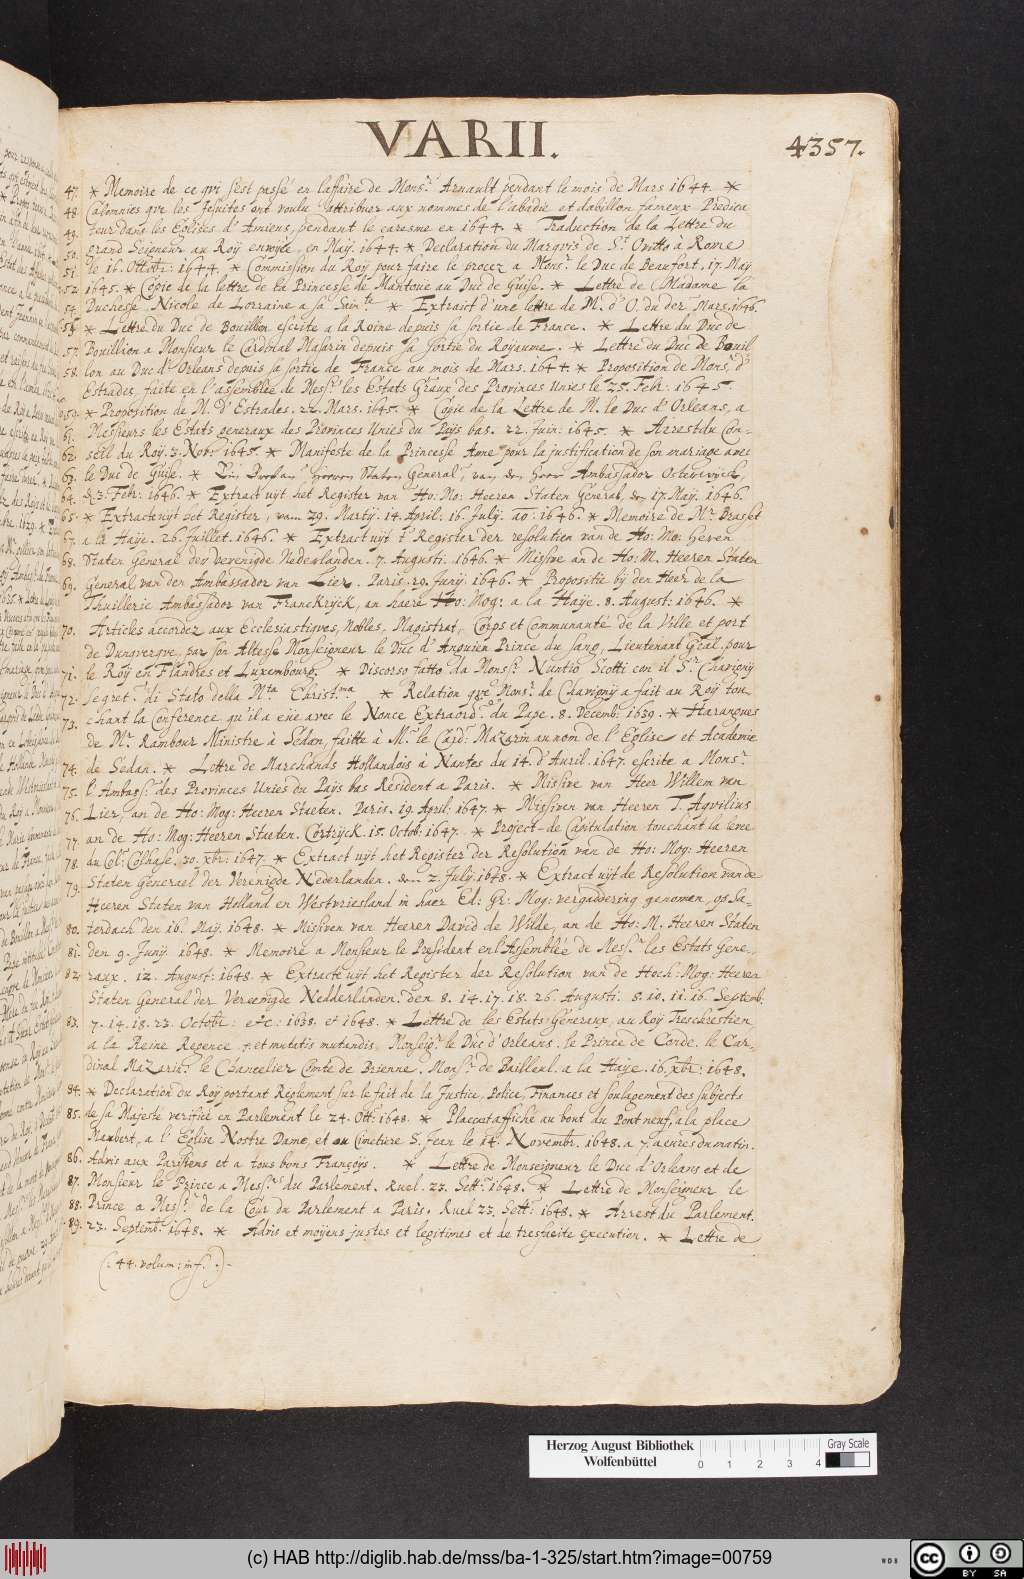 VARII.
4357.
47. * Memoire de ce qvi s'est passé en l'affaire de Mons.r Arnault pendant le mois de Mars 1644. *
48. Calomnies qve les Jesuites ont voulu attribuer aux nommes de l'abadie et dabillon fameux Predica
49. teur dans les Eglises d'Amiens, pendant le caresme en 1644. * Traduction de la Lettre du
50. grand Seigneur au Roÿ envoyée, en Maÿ. 1644. * Declaration du Marqvis de S.t à Rome
51. le 16. Ottobr: 1644. * Commission du Roÿ pour faire le procez a Mons.r le Duc de Beaufort. 17. Maÿ
52. 1645. * Copie de la lettre de la Princesse de Mantoue au Duc de Guise. * Lettre de Madame la
54. Duchesse Nicole de Lorraine a sa Sain.te * Extraict d'une lettre de M. d'O. du der Mars. 1646.
* Lettre du Duc de Bouillon escrite a la Roine depuis sa sortie de France. * Lettre du Duc de
57. Bouillion a Monsieur le Cardinal Masarin depuis sa sortie du Royaume. * Lettre du Duc de Bouil
58. lon au Duc d'Orleans depuis sa sortie de France au mois de Mars. 1644. * Proposition de Mons.r d'
Estrades, faite en l'assemblée de Mess.rs les Estats Gñraux des Provinces Unies le 25. Febr: 1645.
59. * Proposition de M. d'Estrades. 22. Mars. 1645. * Copie de la Lettre de M. le Duc d'Orleans, a
61. Messieurs les Estats generaux des Provinces Unies du Païs bas. 22. Juin: 1645. * Arrest du Con-
62. seil du Roy. 3. Nob: 1645. * Manifeste de la Princesse Anne pour la justification de son mariage avec
63. le Duc de Guise. * General, van den Heer Ambassador Osterwijck,
64. 3. Febr: 1646. * Extract uÿt het Register van Ho: Mo: Heeren Staten General, den 17. Maÿ. 1646.
65. * Extract uÿt het Register, van 29. Martÿ. 14. April. 16. Julÿ. aō: 1646. * Memoire de M.r Brasset
67. a la Haÿe. 26. Juillet. 1646. * Extract uÿt t' Register der resolutien van de Ho: Mo: Heren
68. Staten General der Verenigde Nederlanden. 7. Augusti. 1646. * Missive an de Ho: M. Heeren Staten
69. General van der Ambassador van Lier. Paris. 29. Junÿ. 1646. * Propositie bÿ den Heer de la
Thuillerie Ambassador van Franckrijck, an haere Ho: Mog: a la Haÿe. 8. August: 1646. *
70. Articles accordez aux Ecclesiastiqves, Nobles, Magistrat, Corps et Communauté de la Ville et port
de Dunqverqve, par son Altesse Monseigneur le Duc d'Anguien Prince du sang, Lieutenant Gñal. pour
71. le Roÿ en Flandres et Luxembourg. * Discorso fatto da Mons.r Nuntio Scotti con il S.r Chavigny
72. segret. di Stato della M.ta Christ.ma * Relation qve Mons.r de Chavigny a fait au Roÿ tou
73. chant la Conference qu'il a eüe avec le Nonce Extraord. du Pape. 8. Decemb. 1639. * Harangues
de M.r Rambour Ministre à Sedan, faitte à M.r le Card. Mazarin au nom de l'Eglise et Academie
74. de Sedan. * Lettre de Marchands Hollandois a Nantes du 14. d'Auril. 1647. escrite a Mons.r
75. l'Ambass.r des Provinces Unies du Païs bas Resident a Paris. * Missive van Heer Willem van
76. Lier, an de Ho: Mog: Heeren Staeten. Paris. 19. April. 1647. * Missiven van Heeren T. Aqvilius
77. an de Ho: Mog: Heeren Staeten. Cortrijck. 15. Octob: 1647. * Project de Capitulation touchant la levée
78. du Col: Colhase. 20. xbr: 1647. * Extract uÿt het Register der Resolution van de Ho: Mog: Heeren
79. Staten Generael der Verenigde Nederlanden. den 2. Julÿ. 1648. * Extract uÿt de Resolution van de
Heeren Staten van Holland en Westvriesland in haer Ed: Gr: Mog: vergadering genomen, op Sa-
80. terdach den 16. Maÿ. 1648. * Missiven van Heeren David de Wilde, an de Ho: M. Heeren Staten
81. den 9. Junÿ. 1648. * Memoire a Monsieur le President en l'Assemblée de Mess.rs les Estats Gene-
82. raux. 12. August: 1648. * Extract uÿt het Register der Resolution van de Hoch: Mog: Heeren
Staten General der Vereenigde Nedderlanden. den 8. 14. 17. 18. 26. Augusti. 8. 10. 11. 16. Septemb.
83. 7. 14. 18. 23. Octobr: etc: 1638. et 1648. * Lettre de les Estats Generaux, au Roÿ Treschrestien
a la Reine Regence, et mutatis mutandis, Monseig.r le Duc d'Orleans, le Prince de Conde, le Car-
dinal Mazarin. le Chancelier Comte de Brienne. Mons.r de Bailleul. a la Haÿe. 16. xbr: 1648.
84. * Declaration du Roÿ portant Reglement sur le fait de la Justice, Police, Finances et soulagement des subjects
85. de sa Majesté verifiée en Parlement le 24. Ott: 1648. * Placcart affiché au bout du Pont neuf, a la place
Maubert, a l'Eglise Nostre Dame, et au Cimetiere S. Jean le 14. Novembr. 1648. a 7. heures du matin.
86. Advis aux Parisiens et a tous bons Françoÿs. * Lettre de Monseigneur le Duc d'Orleans et de
87. Monsieur le Prince a Mess.rs du Parlement. Ruel. 23. Sett. 1648. * Lettre de Monseigneur le
88. Prince a Mess.rs de la Cour du Parlement a Paris. Ruel 23. Sett. 1648. * Arrest du Parlement.
89. 23. Septemb. 1648. * Advis et moÿens justes et legitimes et de tresfacile execution. * Lettre de
(: 44. volum: in f.º :)
Herzog August Bibliothek
Wolfenbüttel
0 1 2 3 4
Gray Scale
(c) HAB http://diglib.hab.de/mss/ba-1-325/start.htm?image=00759
WDB
cc BY SA